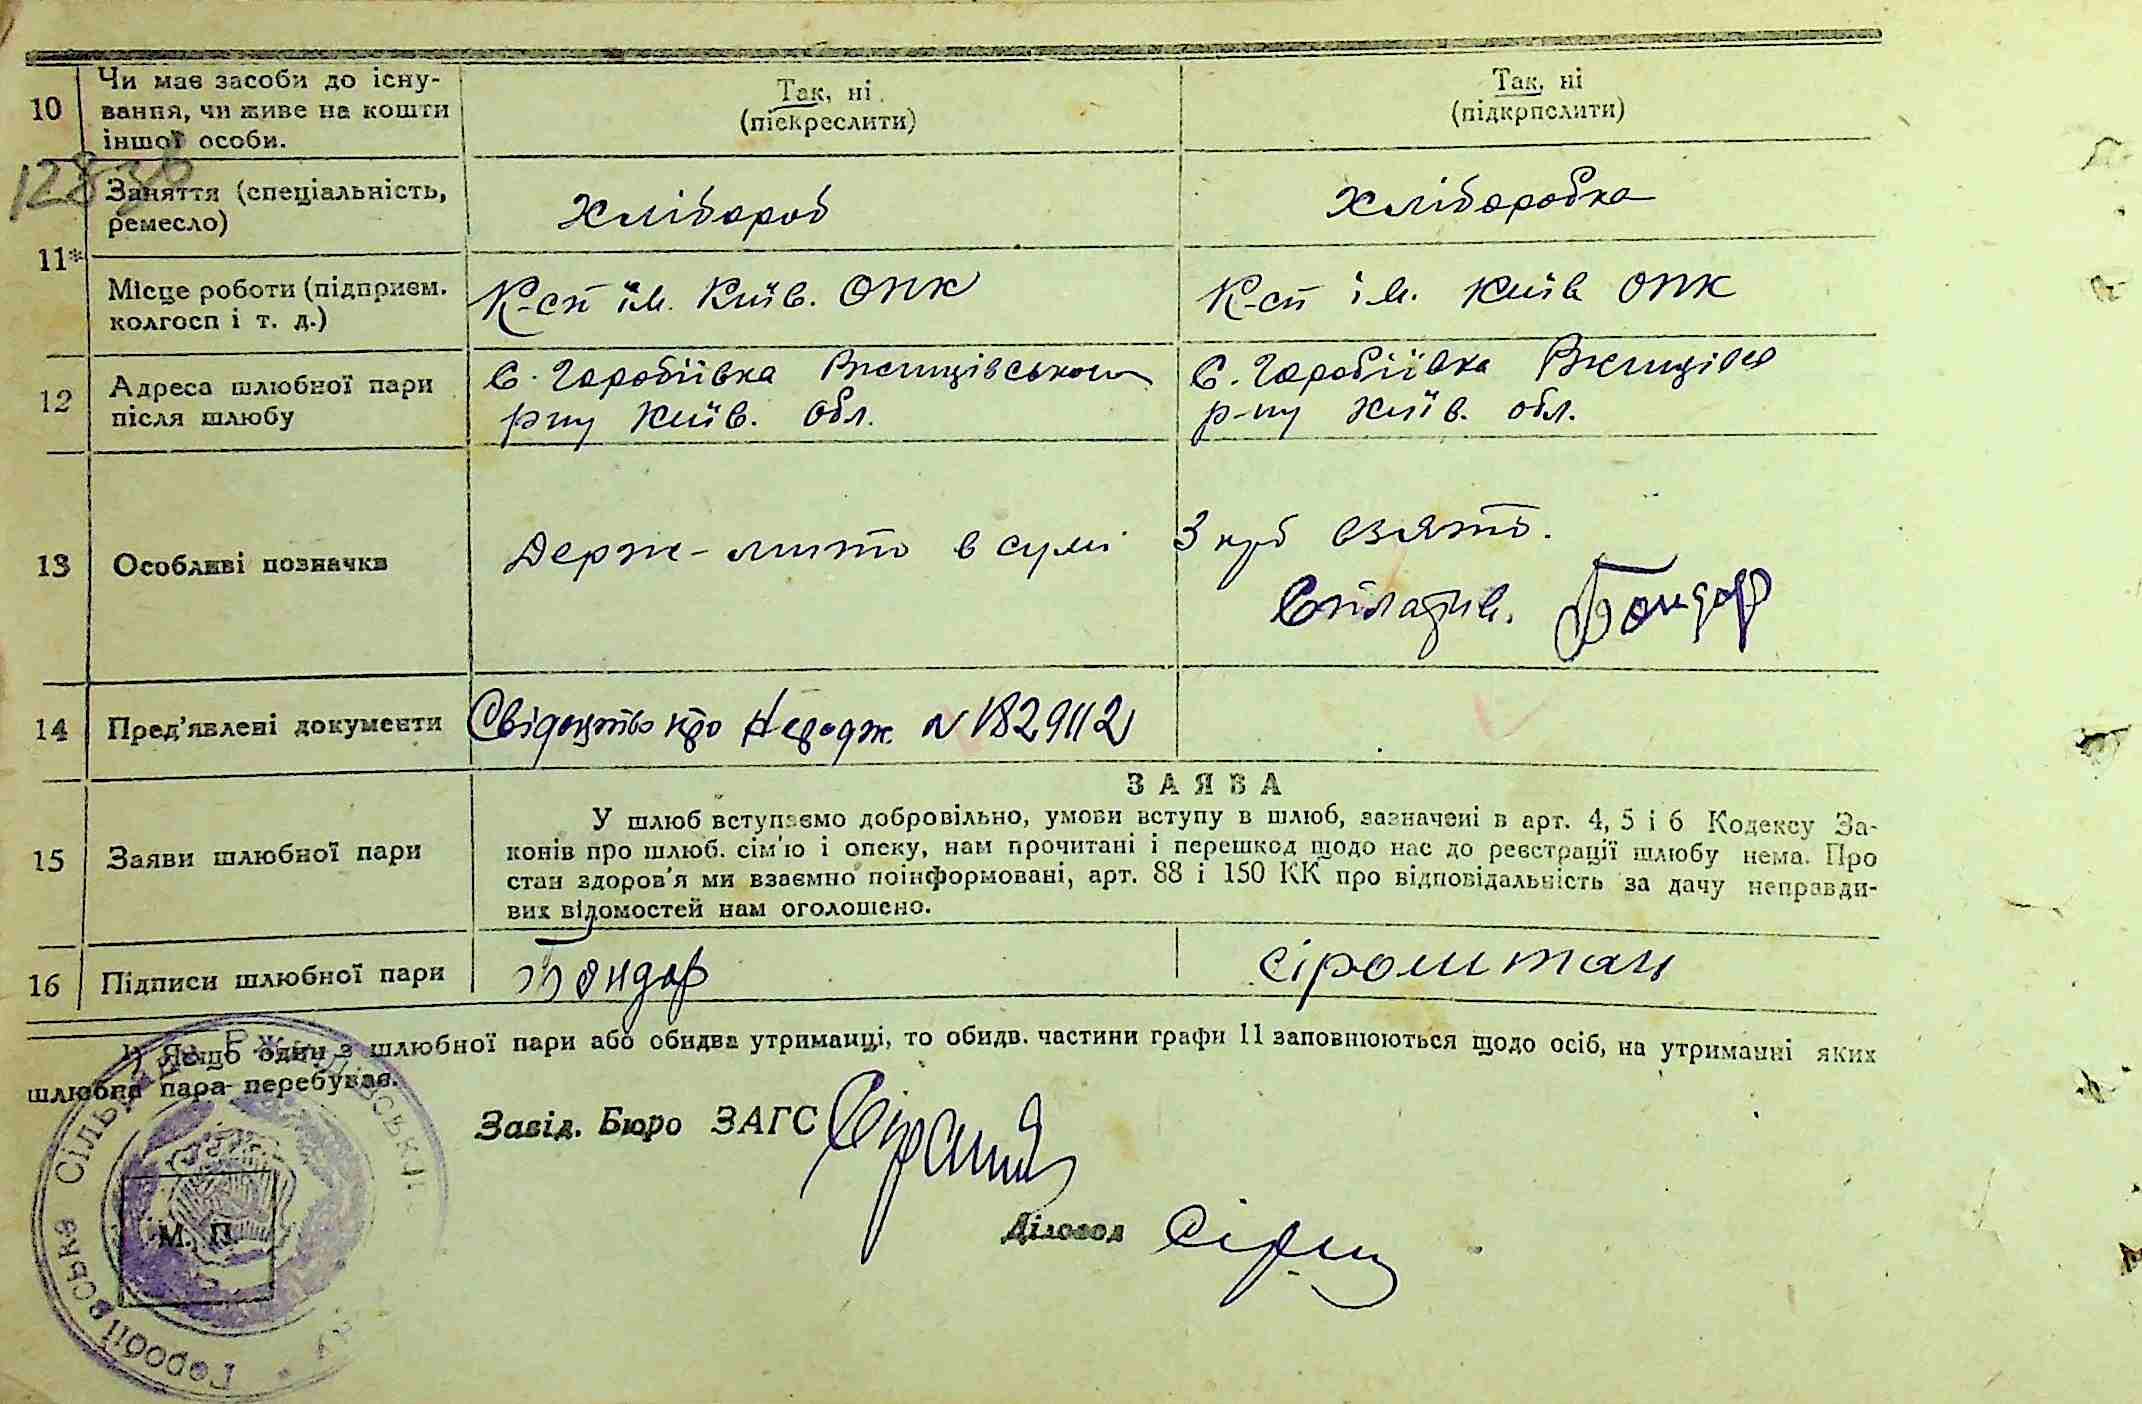 10 Чи має засоби до існу-
вання, чи живе на кошти
іншої особи.
Так, ні
(піскреслити)
Так, ні
(підкрпслити)
1283б
11*
Заняття (спеціальність,
ремесло)
Хлібороб
Хліборобка
Місце роботи (підприєм.
колгосп і т. д.)
К-сп ім. Київ. ОПК
К-сп ім. Київ ОПК
12 Адреса шлюбної пари
після шлюбу
с. Горобіївка Ржищівського
р-ну Київ. обл.
с. Горобіївка Ржищівся
р-ну Київ. обл.
13 Особливі позначки
Держ-мито в сумі 3 крб взято.
Сплатив. Бондар
14 Пред'явлені документи
Свідоцтво про народж. N 1829112
15 Заяви шлюбної пари
ЗАЯВА
У шлюб вступаємо добровільно, умови вступу в шлюб, зазначені в арт. 4, 5 і 6 Кодексу За-
конів про шлюб. сім'ю і опеку, нам прочитані і перешкод щодо нас до реєстрації шлюбу нема. Про
стан здоров'я ми взаємно поінформовані, арт. 88 і 150 КК про відповідальність за дачу неправди-
вих відомостей нам оголошено.
16 Підписи шлюбної пари
Бондар
Сіроштан
¹) Якщо один з шлюбної пари або обидва утриманці, то обидв. частини графи 11 заповнюються щодо осіб, на утриманні яких
шлюбна пара перебуває.
Завід. Бюро ЗАГС
Діловод
М. П.
Горобіївська Сільрада Ржищівський